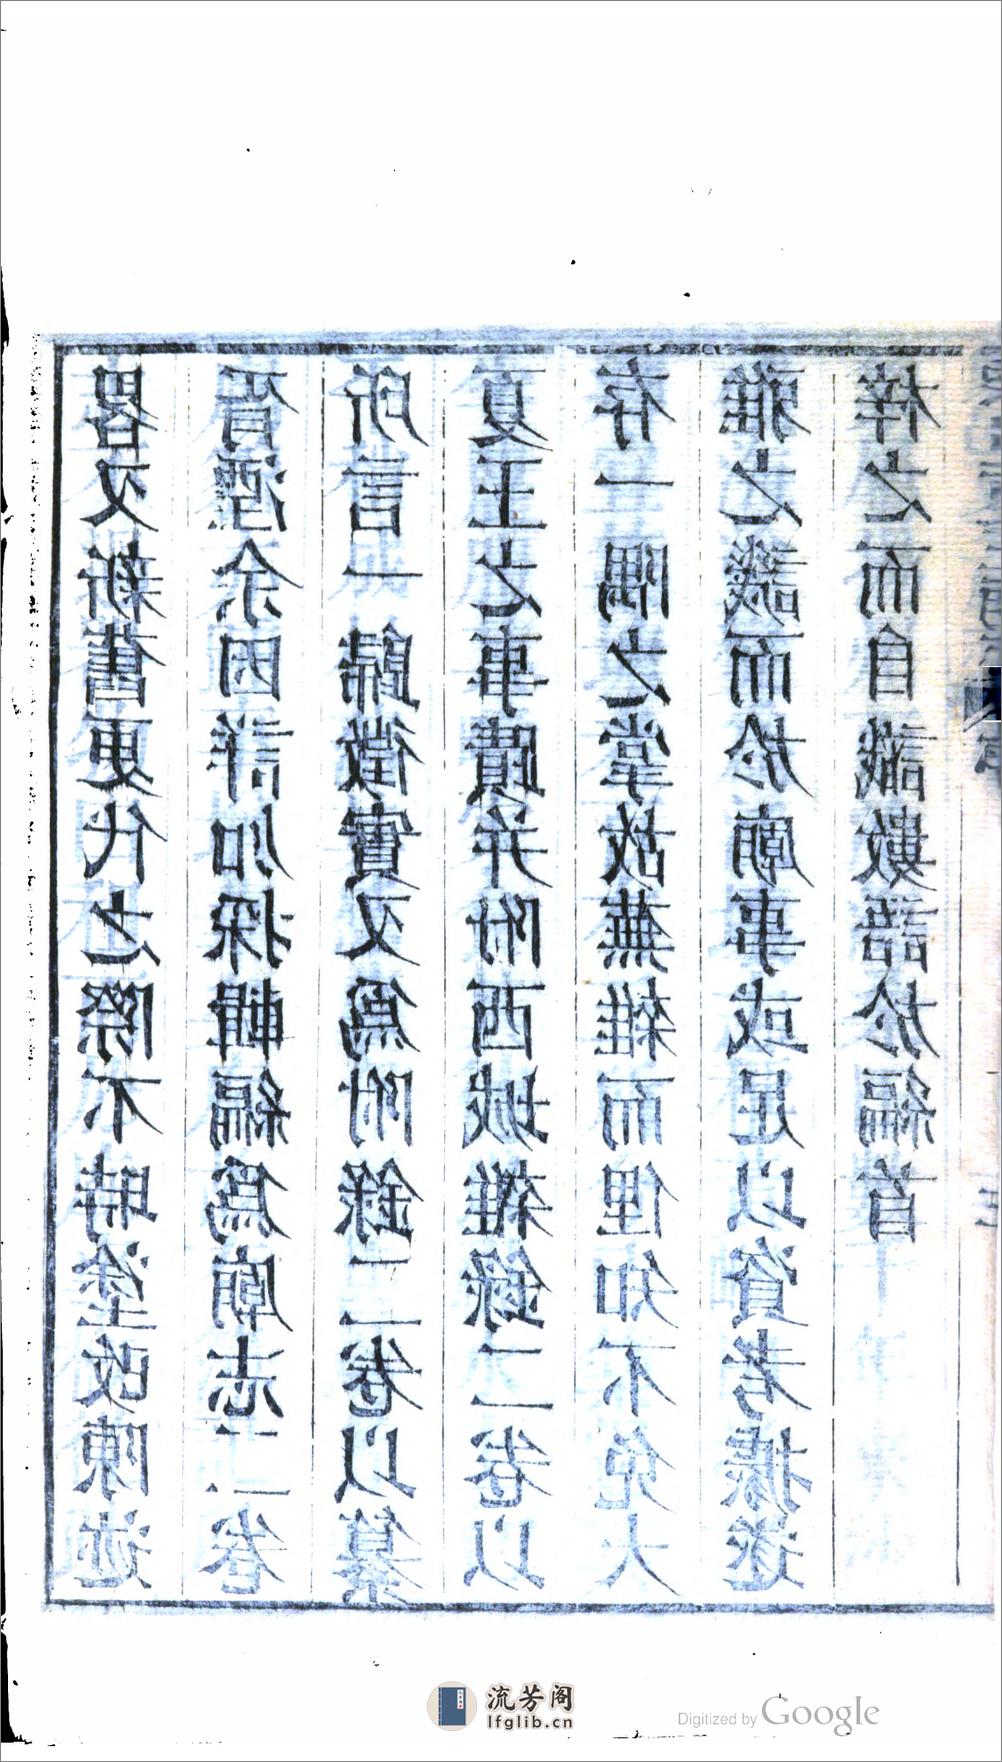 畧又新舊更代之際不時塗改陳迹
胥湮余因詳加採輯編爲廟志二卷
所言一歸徵實又爲附錄二卷以纂
夏王之事蹟并附西城雜錄二卷以
存一隅之掌故蕪雜而俚知不免大
雅之譏而於廟事或足以資考據遂
梓之而自識數語於編首
流芳阁
lfglib.cn
Digitized by Google